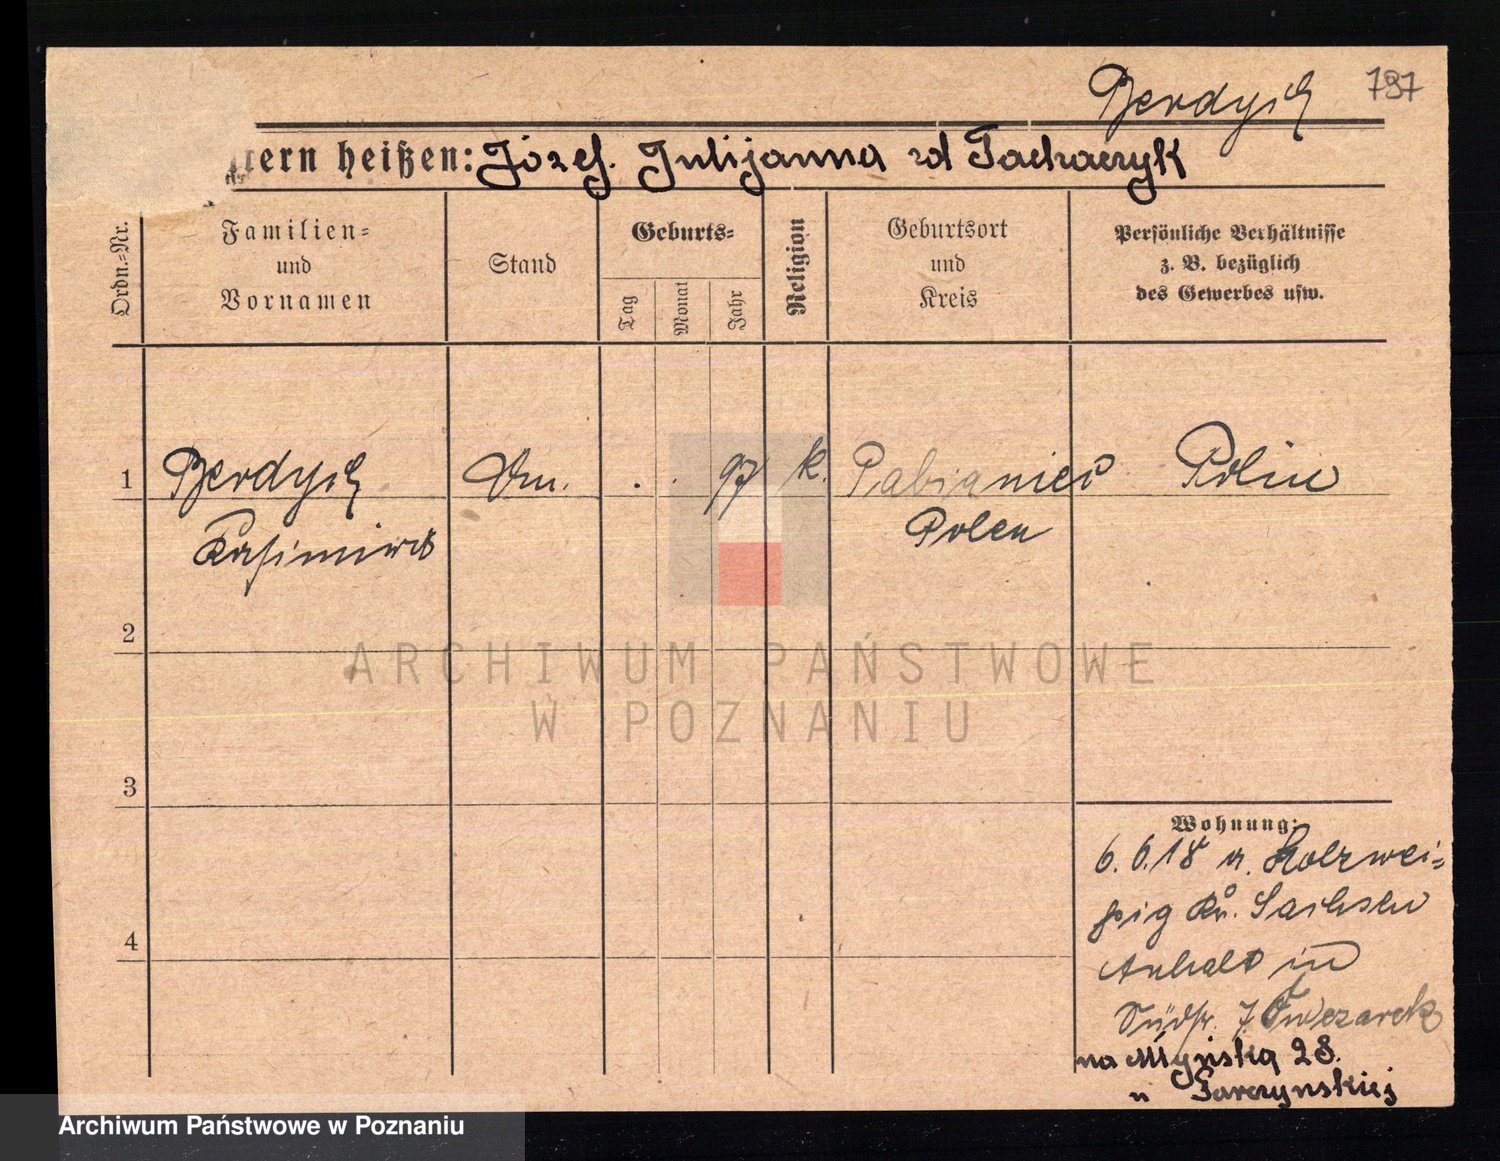 Berdysz 797
tern heißen: Józef. Julijanna zd Tacharzyk
Ordn.-Nr.
Familien-
und
Vornamen
Stand
Geburts-
Tag
Monat
Jahr
Religion
Geburtsort
und
Kreis
Persönliche Verhältnisse
z. B. bezüglich
des Gewerbes usw.
1 Berdysz . . 97 k. Pabianice
Kasimira Polen
2
3
4
Wohnung:
6.6.18 n. Holzwei-
ßig Kr. Sachsen
Anhalt in
Südstr. 7
na Młyńską 28.
u Garczynskiej
ARCHIWUM PAŃSTWOWE
W POZNANIU
Archiwum Państwowe w Poznaniu